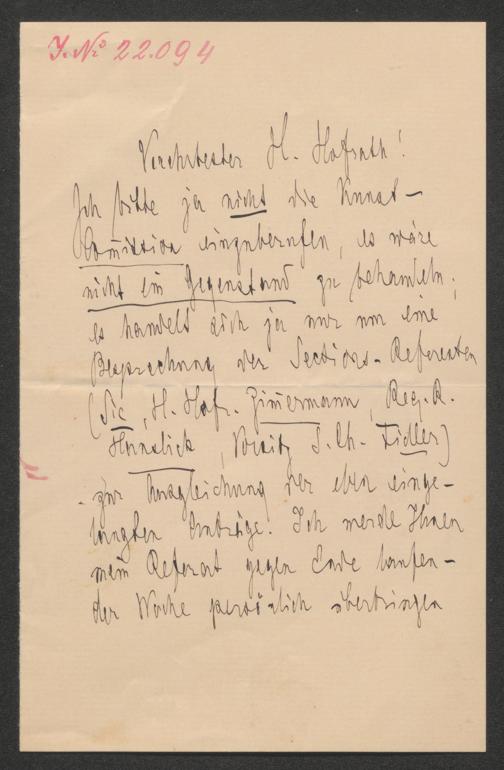 J. No 22.094
Verehrtester H. Hofrath!
Ich bitte ja nicht die Kunst-
Com̄ission einzuberufen, es wäre
nicht ein Gegenstand zu behandeln;
es handelt sich ja nur um eine
Besprechung der Sections-Referenten
(Sie, H. Hofr. Zim̄ermann, Reg. R.
Hanslick, Vorsitz S. Ch. Fidler)
zur Ausgleichung der eben einge-
langten Anträge. Ich werde Ihnen
mein Referat gegen Ende laufen-
der Woche persönlich überbringen